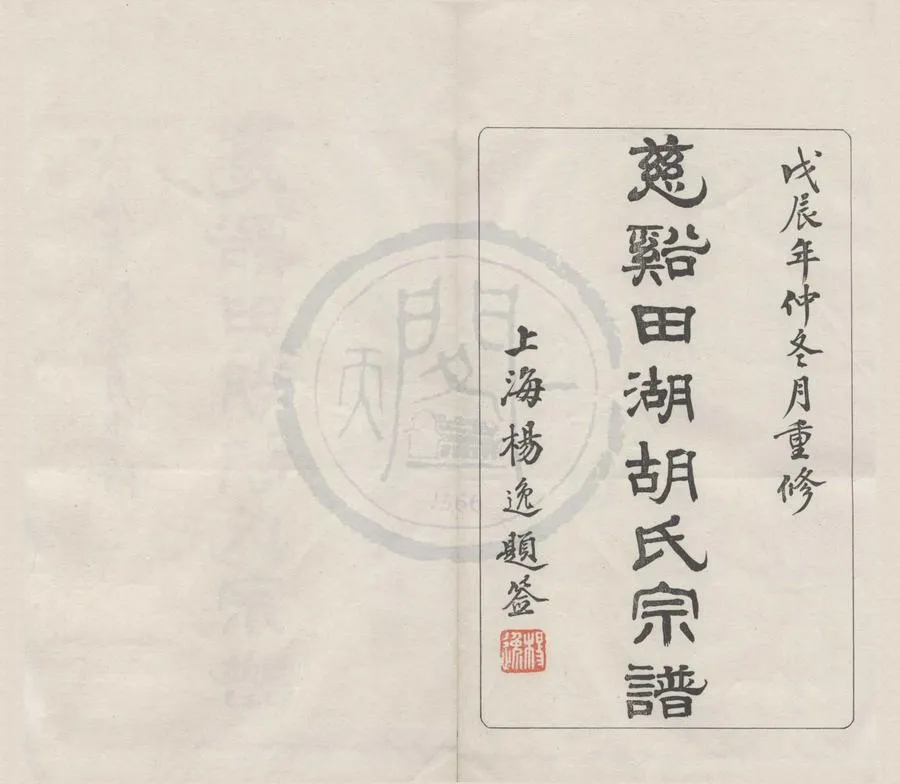 戊辰年仲冬月重修
慈谿田湖胡氏宗譜
上海楊逸題簽
楊逸
天一閣
1566